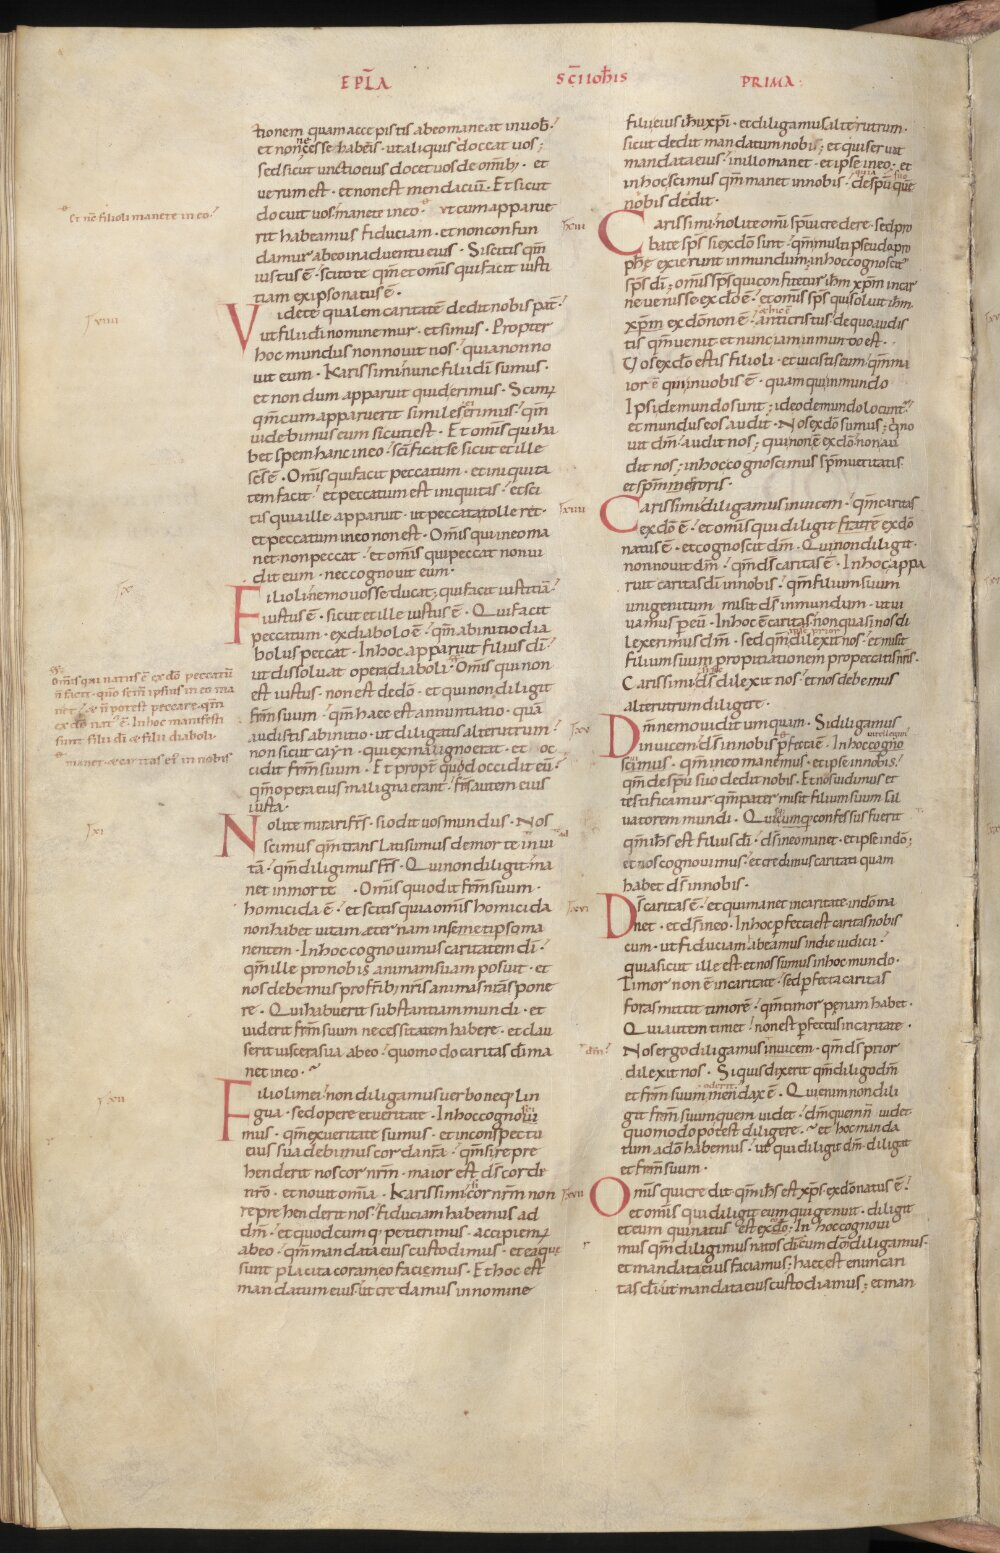 EPLA SCI IOHIS PRIMA
tionem quam accepistis ab eo maneat in uob.
et non necesse habetis ut aliquis doceat uos;
sed sicut unctio eius docet uos de omnib; et
uerum est. et non est mendaciū. Et sicut
docuit uos manete in eo. Et nc̄ filioli manete in eo. ut cum apparue
rit habeamus fiduciam. et non confun
damur ab eo in aduentu eius. Si scitis qm̄
iustus ē. scitote qm̄ et om̄is qui facit iusti
tiam ex ipso natus ē.
uiiii
Videte qualem caritatē dedit nobis pat̄.
ut filii dī nominemur. et simus. Propter
hoc mundus non nouit nos. quia non no
uit eum. Karissimi nunc filii dī sumus.
et nondum apparuit quid erimus. Scim;
qm̄ cum apparuerit similes ei erimus. qm̄
uidebimus eum sicuti est. Et om̄is qui ha
bet spem hanc in eo. scīficat se sicut et ille
scs̄ ē. Om̄is qui facit peccatum. et iniquita
tem facit. et peccatum est iniquitas. et sci
tis quia ille apparuit. ut peccata tolleret.
et peccatum in eo non est. Om̄is qui in eo ma
net non peccat. et om̄is qui peccat non ui
dit eum. nec cognouit eum.
x
Filioli nemo uos seducat; qui facit iustitiā.
iustus ē. sicut et ille iustus ē. Qui facit
peccatum. ex diabolo ē. qm̄ ab initio dia
bolus peccat. In hoc apparuit filius dī.
ut dissoluat opera diaboli. Om̄is qui non
Om̄is qui natus ē ex dō peccatū
n̄ facit. qm̄o sem̄ ipsius in eo ma
net. & n̄ potest peccare. qm̄
ex dō nat' ē. In hoc manifesti
sunt filii dī & filii diaboli.
est iustus. non est de dō. et qui non diligit
frm̄ suum. qm̄ haec est annuntiatio. quā
audistis ab initio. ut diligatis alterutrum.
manet. & caritas ei' in nobis
non sicut cayn. qui ex maligno erat. et oc
cidit frm̄ suum. Et propt̄ quod occidit eū.
qm̄ opera eius maligna erant. frīs autem eius
iusta.
xi
Nolite mirari frs̄. si odit uos mundus. Nos
scimus qm̄ translati sumus de morte in ui
tā. qm̄ diligimus frs̄. Qui non diligit. ma
net in morte. Om̄is qui odit frm̄ suum.
homicida ē. et scitis quia om̄is homicida
non habet uitam aeternam in semetipso ma
nentem. In hoc cognouimus caritatem dī.
qm̄ ille pro nobis animam suam posuit. et
nos debemus pro frīb; nr̄is animas nr̄as pone
re. Qui habuerit substantiam mundi. et
uiderit frm̄ suum necessitatem habere. et clau
serit uiscera sua ab eo. quomodo caritas dī ma
net in eo.
xii
Filioli mei non diligamus uerbo neq; lin
gua. sed opere et ueritate. In hoc cognoui
mus. qm̄ ex ueritate sumus. et in conspectu
eius suadebimus corda nr̄a. qm̄ si repre
henderit nos cor nr̄m. maior est ds̄ corde
nr̄o. et nouit om̄ia. Karissimi si cor nr̄m non
reprehenderit nos. fiduciam habemus ad
dm̄. et quodcumq; petierimus. accipiem;
ab eo. qm̄ mandata eius custodimus. et ea que
sunt placita coram eo facimus. Et hoc est
mandatum eius. ut credamus in nomine
filii eius ihū xp̄i. et diligamus alterutrum.
sicut dedit mandatum nobis; et qui seruat
mandata eius. in illo manet. et ipse in eo; et
in hoc scimus qm̄ manet in nobis. de sp̄u quē
nobis dedit.
xiii
Carissimi nolite om̄i sp̄ui credere. sed pro
bate sp̄s si ex dō sunt. qm̄ multi pseudopro
phē exierunt in mundum; in hoc cognoscit'
sp̄s dī; om̄is sp̄s qui confitetur ihm̄ xp̄m in car
ne uenisse ex dō ē. et om̄is sp̄s qui soluit ihm̄.
xp̄m ex dō non ē. & hic ē anticristus de quo audis
tis qm̄ uenit et nunc iam in mundo est.
Vos ex dō estis filioli. et uicistis eum. qm̄ ma
ior ē qui in uobis ē. quam qui in mundo
Ipsi de mundo sunt; ideo de mundo locunt'.
et mundus eos audit. Nos ex dō sumus; q̄ no
uit dm̄. audit nos; qui non ē ex dō non au
dit nos; in hoc cognoscimus sp̄m ueritatis.
et sp̄m erroris.
xiiii
Carissimi diligamus inuicem. qm̄ caritas
ex dō ē. et om̄is qui diligit fratrē ex dō
natus ē. et cognoscit dm̄. Qui non diligit.
non nouit dm̄. qm̄ ds̄ caritas ē. In hoc appa
ruit caritas dī in nobis. qm̄ filium suum
unigenitum misit ds̄ in mundum. ut ui
uamus p̄ eū. In hoc ē caritas. non quasi nos di
lexerimus dm̄. sed qm̄ ipse prior dilexit nos. et misit
filium suum propitiationem pro peccatis nr̄is.
Carissimi si ds̄ dilexit nos. et nos debemus
alterutrum diligere.
xv
Dm̄ nemo uidit umquam. Si diligamus
inuicem. ds̄ in nobis p̄fecta ē. In hoc cogno
intelligim'
scimus. qm̄ in eo manemus. et ipse in nobis.
qm̄ de sp̄u suo dedit nobis. Et nos uidimus et
testificamur qm̄ pater misit filium suum sal
uatorem mundi. Quicumq; confessus fuerit
qm̄ ihs̄ est filius dī. ds̄ in eo manet. et ipse in dō;
et nos cognouimus. et credimus caritati quam
habet ds̄ in nobis.
xvi
Ds̄ caritas ē. et qui manet in caritate. in dō ma
net. et ds̄ in eo. In hoc p̄fecta est caritas nobis
cum. ut fiduciam habeamus in die iudicii.
quia sicut ille est. et nos sumus in hoc mundo.
Timor non ē in caritate. sed p̄fecta caritas
foras mittit timorē. qm̄ timor penam habet.
Qui autem timet. non est p̄fectus in caritate.
dm̄
Nos ergo diligamus inuicem. qm̄ ds̄ prior
dilexit nos. Si quis dixerit qm̄ diligo dm̄
et frm̄ suum oderit. mendax ē. Qui enim non dili
git frm̄ suum quem uidet. dm̄ quem n̄ uidet
quomodo potest diligere. et hoc manda
tum a dō habemus. ut qui diligit dm̄. diligat
et frm̄ suum.
xvii
Om̄is qui credit qm̄ ihs̄ est xp̄s. ex dō natus ē.
et om̄is qui diligit eum qui genuit. diligit
et eum qui natus est ex dō. In hoc cognoui
mus qm̄ diligimus natos dī. cum dm̄ diligamus.
et mandata eius faciamus; haec est enim cari
tas dī. ut mandata eius custodiamus; et man